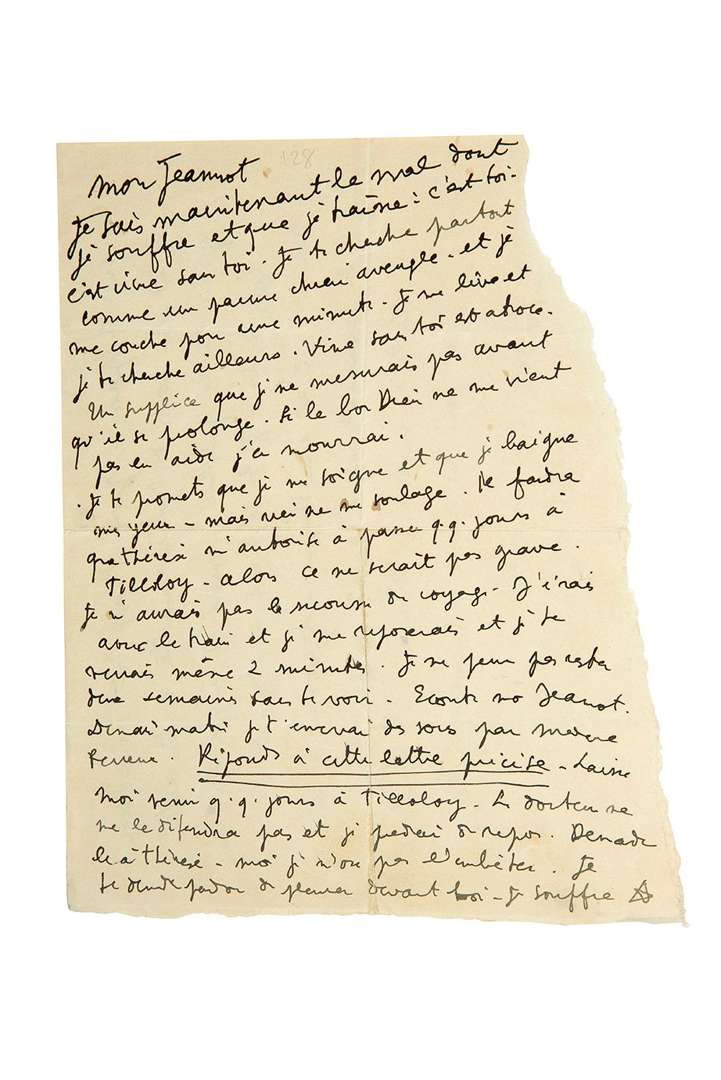 mon Jeannot 128
Je sais maintenant le mal dont
je souffre et que je traîne : c'est toi -
c'est vivre sans toi. Je te cherche partout
comme un pauvre chien aveugle - et je
me couche pour une minute - Je me lève et
je te cherche ailleurs. Vivre sans toi est atroce.
Un supplice que je ne mesurais pas avant
qu'il se prolonge. Si le bon Dieu ne me vient
pas en aide j'en mourrai.
. Je te promets que je me soigne et que je baigne
mes yeux - mais rien ne me soulage. Il faudra
que Thérèse m'autorise à passer q.q. jours à
Tilloloy - alors ce ne serait pas grave.
Je n'aurais pas la secousse du voyage - J'irais
avec le train et je me reposerais et je te
verrais même 2 minutes. Je ne peux pas rester
deux semaines sans te voir. Ecoute mon Jeannot.
Demain matin je t'enverrai des sous par madame
. Réponds à cette lettre précise - Laisse
moi venir q.q. jours à Tilloloy - Le docteur ne
me le défendra pas et je prendrai du repos. Demande
le à Thérèse - moi je n'ose pas l'embêter. Je
te demande pardon de pleurer devant toi - Je souffre